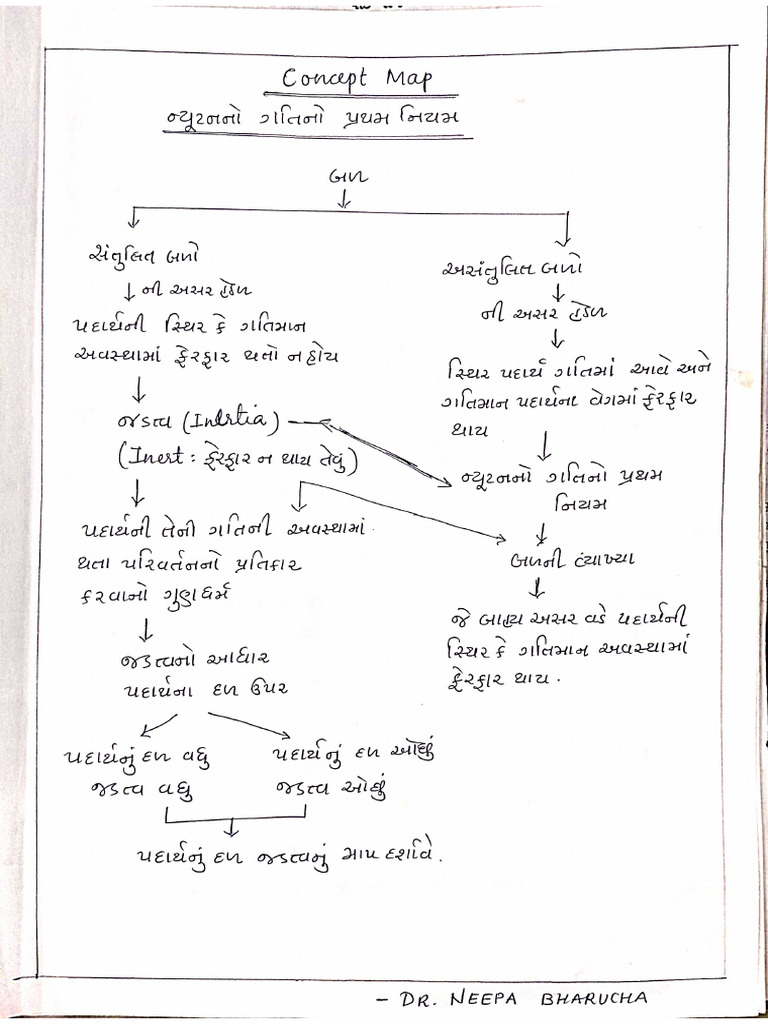 Concept Map
ન્યૂટનનો ગતિનો પ્રથમ નિયમ
બળ
સંતુલિત બળો
ની અસર હેઠળ
પદાર્થની સ્થિર કે ગતિમાન
અવસ્થામાં ફેરફાર થતો ન હોય
જડત્વ (Inertia)
(Inert : ફેરફાર ન થાય તેવું)
પદાર્થની તેની ગતિની અવસ્થામાં
થતા પરિવર્તનનો પ્રતિકાર
કરવાનો ગુણધર્મ
જડત્વનો આધાર
પદાર્થના દળ ઉપર
પદાર્થનું દળ વધુ
જડત્વ વધુ
પદાર્થનું દળ ઓછું
જડત્વ ઓછું
પદાર્થનું દળ જડત્વનું માપ દર્શાવે.
અસંતુલિત બળો
ની અસર હેઠળ
સ્થિર પદાર્થ ગતિમાં આવે અને
ગતિમાન પદાર્થના વેગમાં ફેરફાર
થાય
ન્યૂટનનો ગતિનો પ્રથમ
નિયમ
બળની વ્યાખ્યા
જે બાહ્ય અસર વડે પદાર્થની
સ્થિર કે ગતિમાન અવસ્થામાં
ફેરફાર થાય.
- DR. NEEPA BHARUCHA